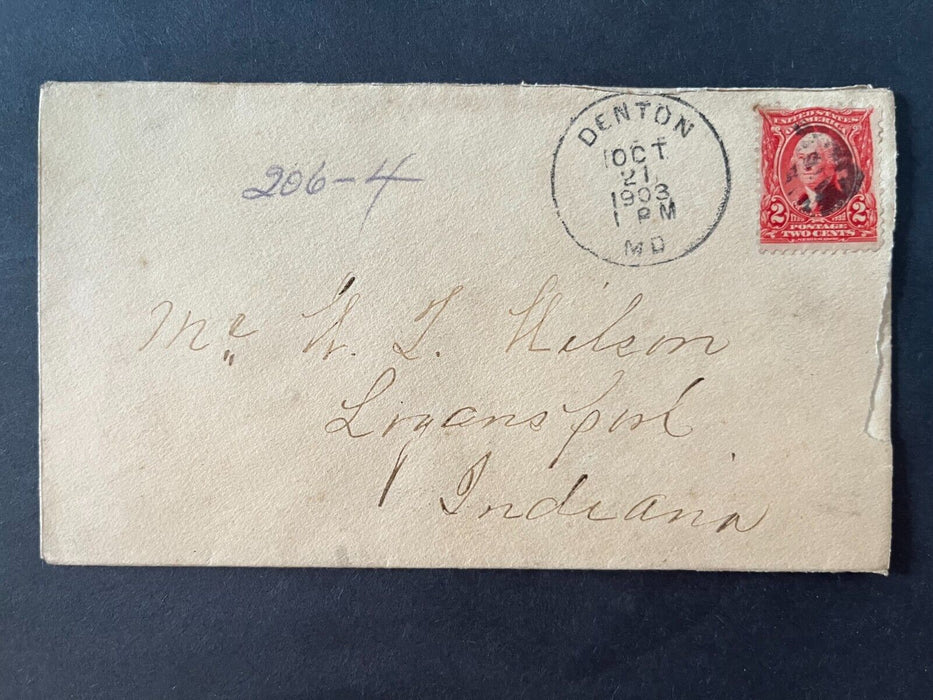 206-4
DENTON
OCT
21
1903
1 PM
MD
UNITED STATES
OF AMERICA
2 2
POSTAGE
TWO CENTS
Mr. W. T. Wilson
Logansport
Indiana